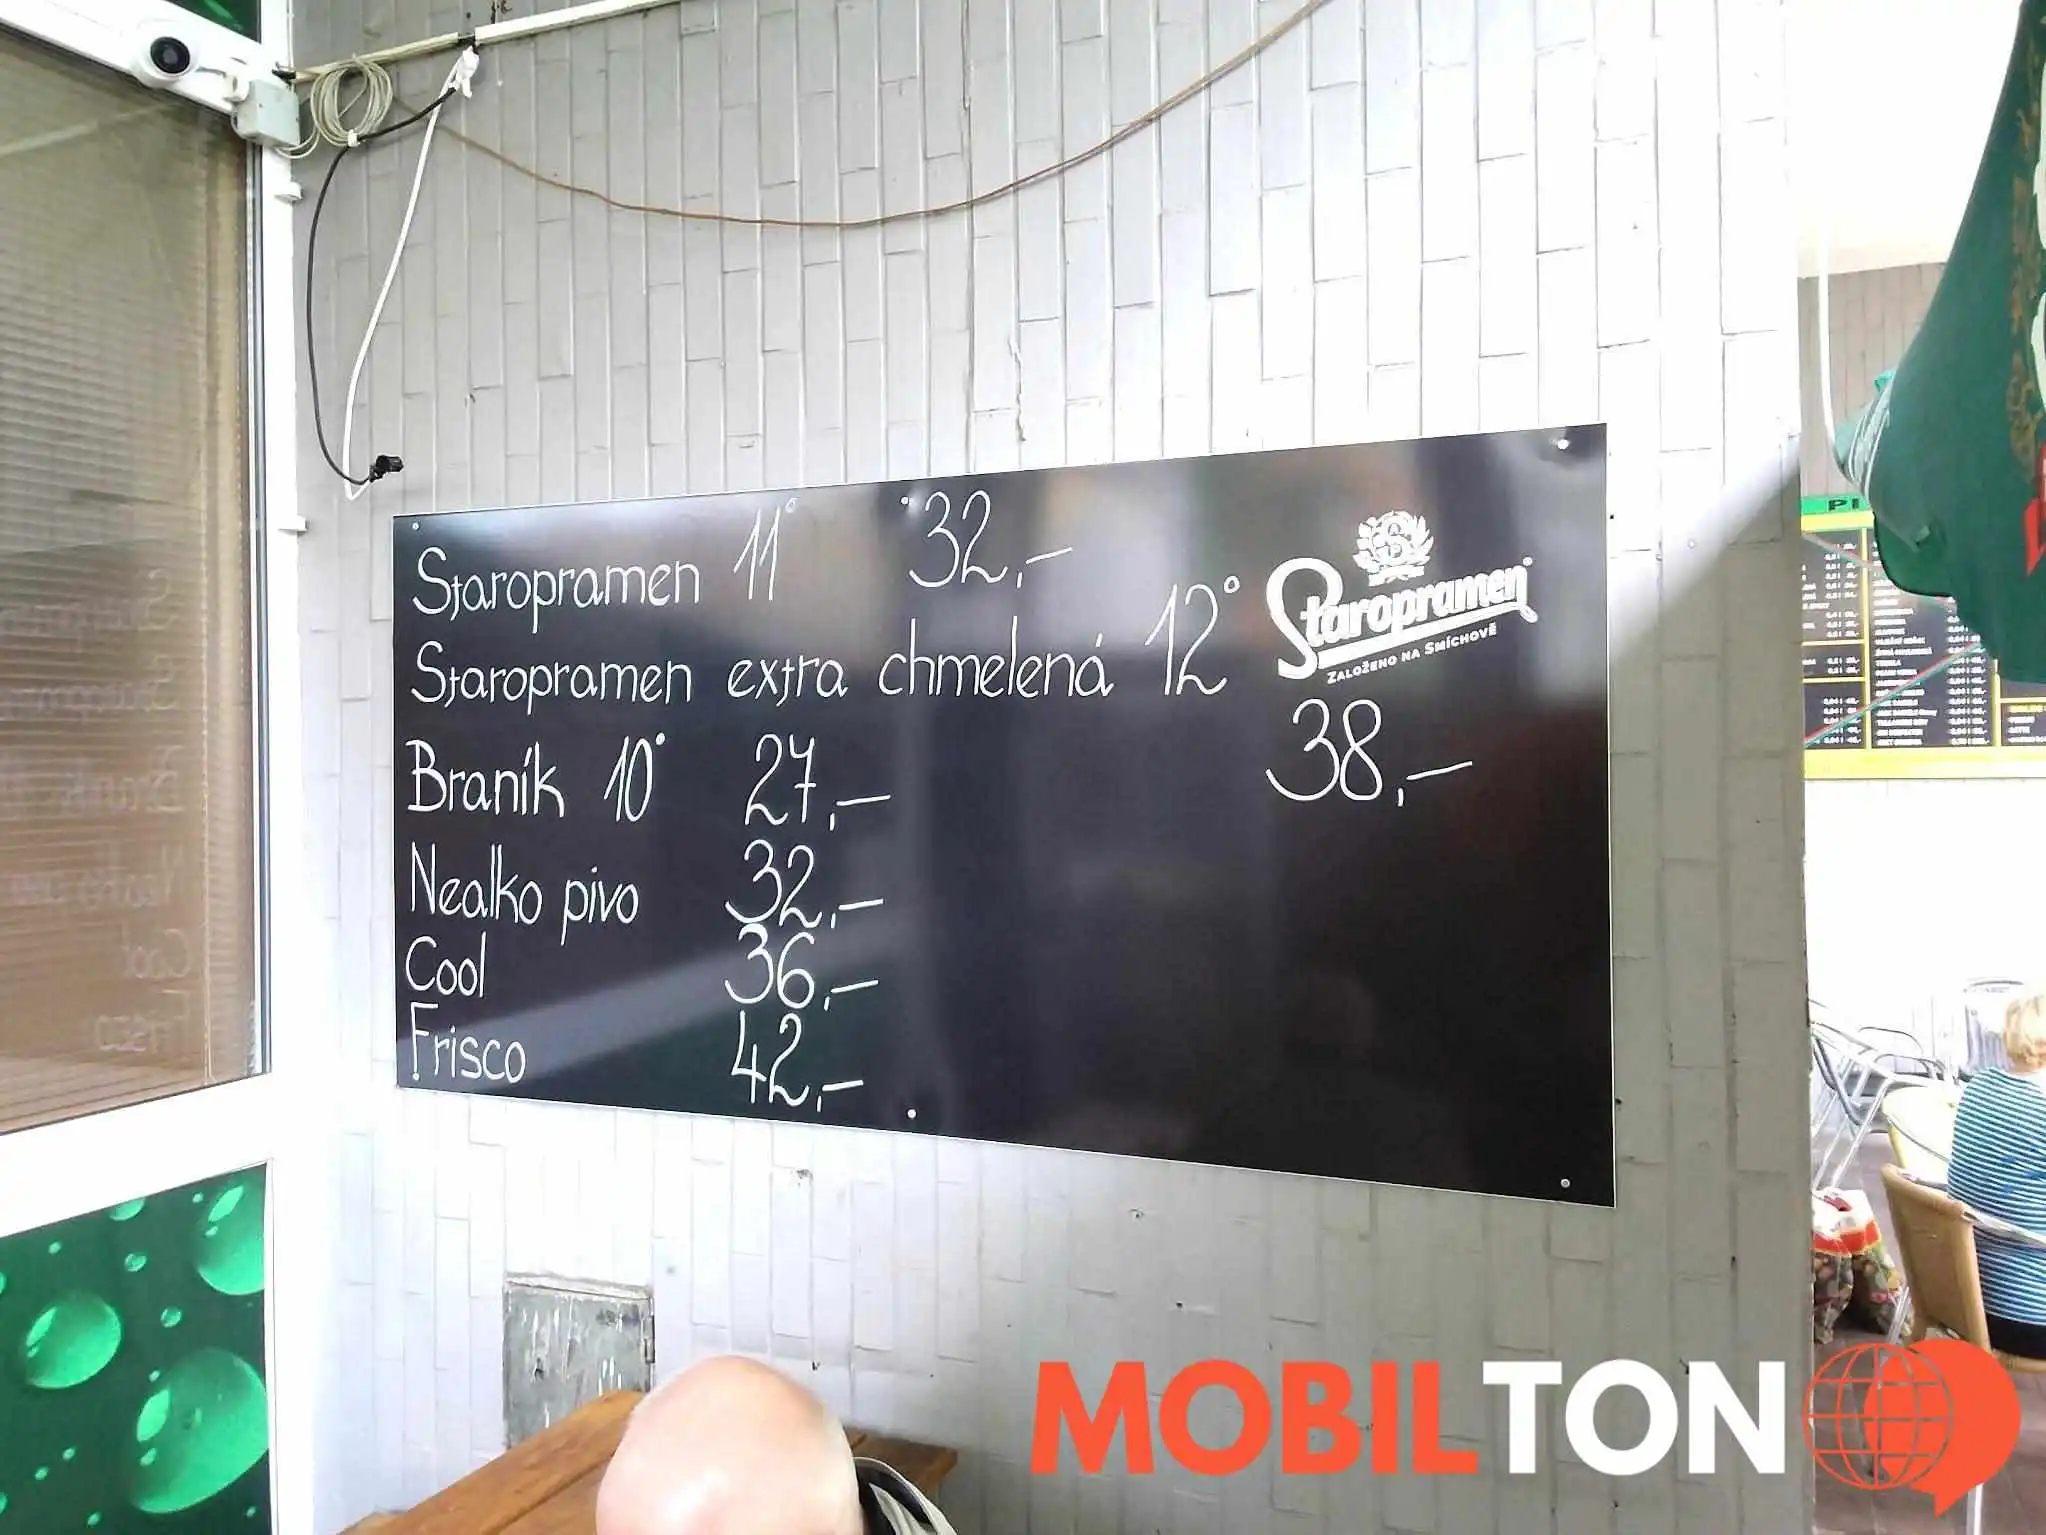 Staropramen 11° 32,-
Staropramen extra chmelená 12°
38,-
Braník 10° 27,-
Nealko pivo 32,-
Cool 36,-
Frisco 42,-
Staropramen
ZALOŽENO NA SMÍCHOVĚ
MOBILTON